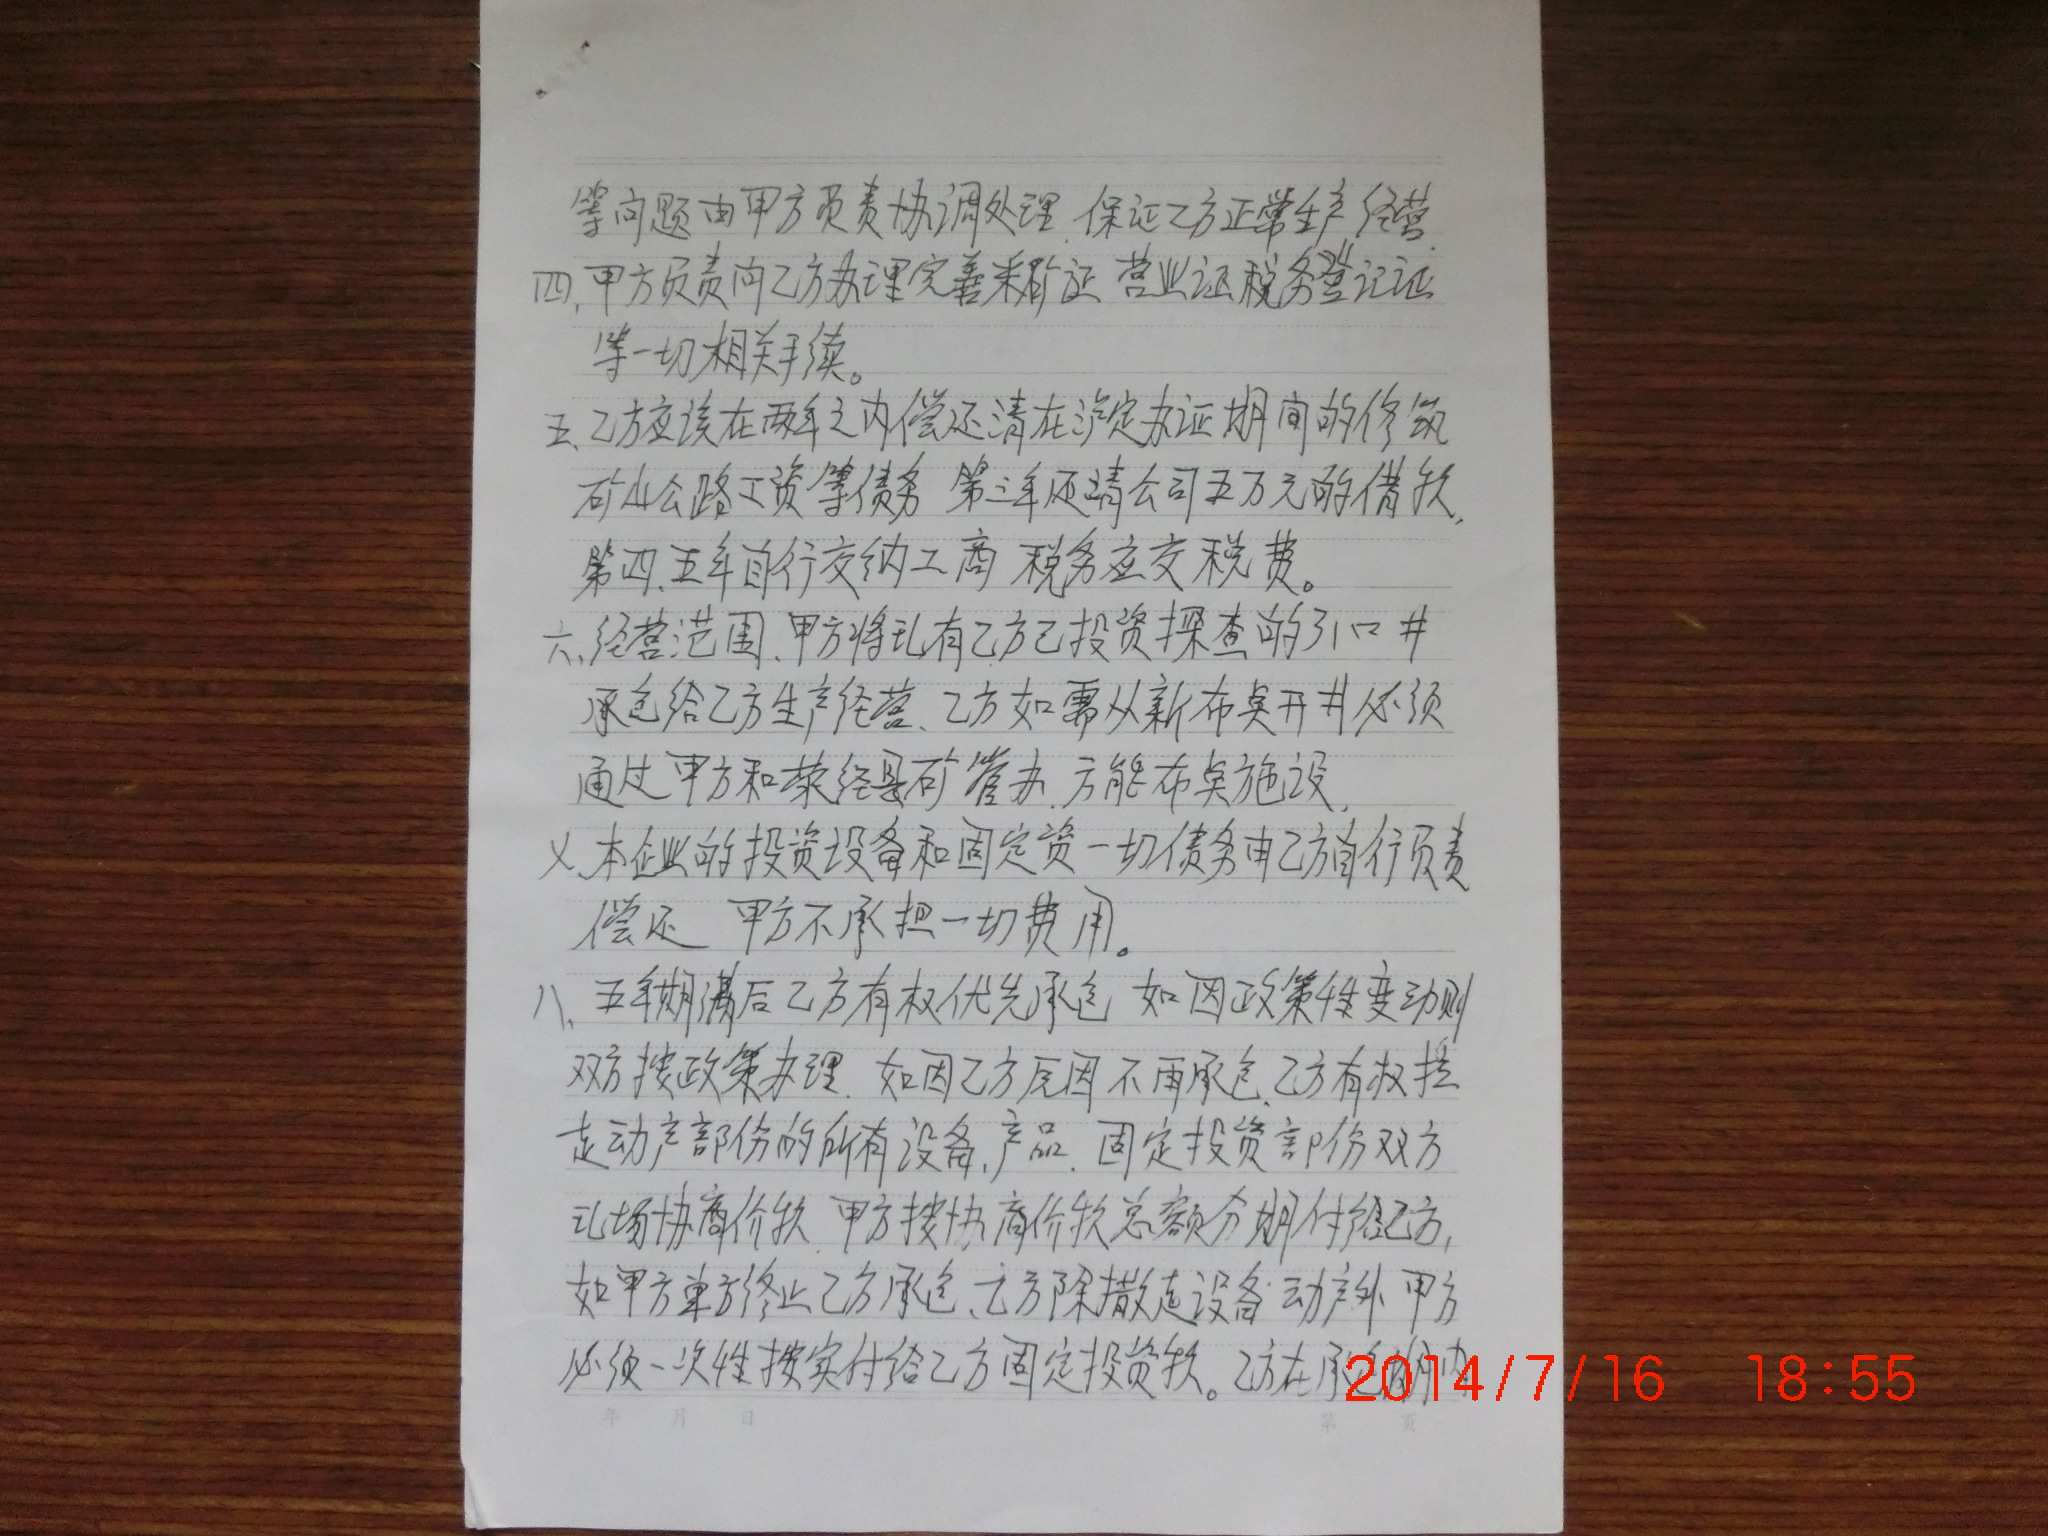 等问题由甲方负责协调处理.保证乙方正常生产经营.
四、甲方负责向乙方办理完善采矿证 营业证税务登记证
等一切相关手续。
五、乙方应该在两年之内偿还清在泸定办证期间的修筑
矿山公路工资等债务 第三年还请公司五万元的借款,
第四、五年自行交纳工商 税务应交税费。
六、经营范围、甲方将现有乙方已投资探查的引口井
承包给乙方生产经营、乙方如需从新布点开井必须
通过甲方和荥经县矿管办.方能布点施设,
七、本企业的投资设备和固定资一切债务由乙方自行负责
偿还 甲方不承担一切费用。
八、五年期满后乙方有权优先承包 如因政策性变动则
双方按政策办理.如因乙方原因不再承包、乙方有权提
走动产部份的所有设备、产品.固定投资部份双方
现场协商价款.甲方按协商价款总额分期付给乙方,
如甲方单方终止乙方承包、乙方除撤走设备动产外甲方
必须一次性按实付给乙方固定投资款。乙方在承包期内
年 月 日 第 页
2014/7/16 18:55